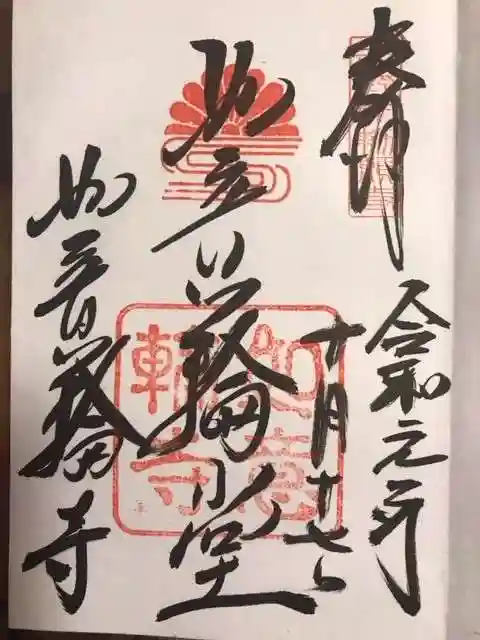 奉拝
令和元年
十月廿七日
如意輪堂
如意輪寺
如意
輪寺